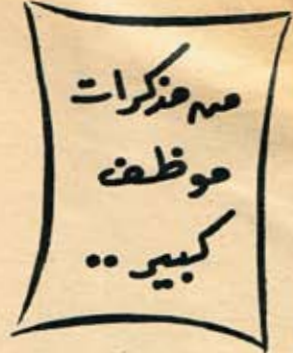 من مذكرات
موظف
كبير ..